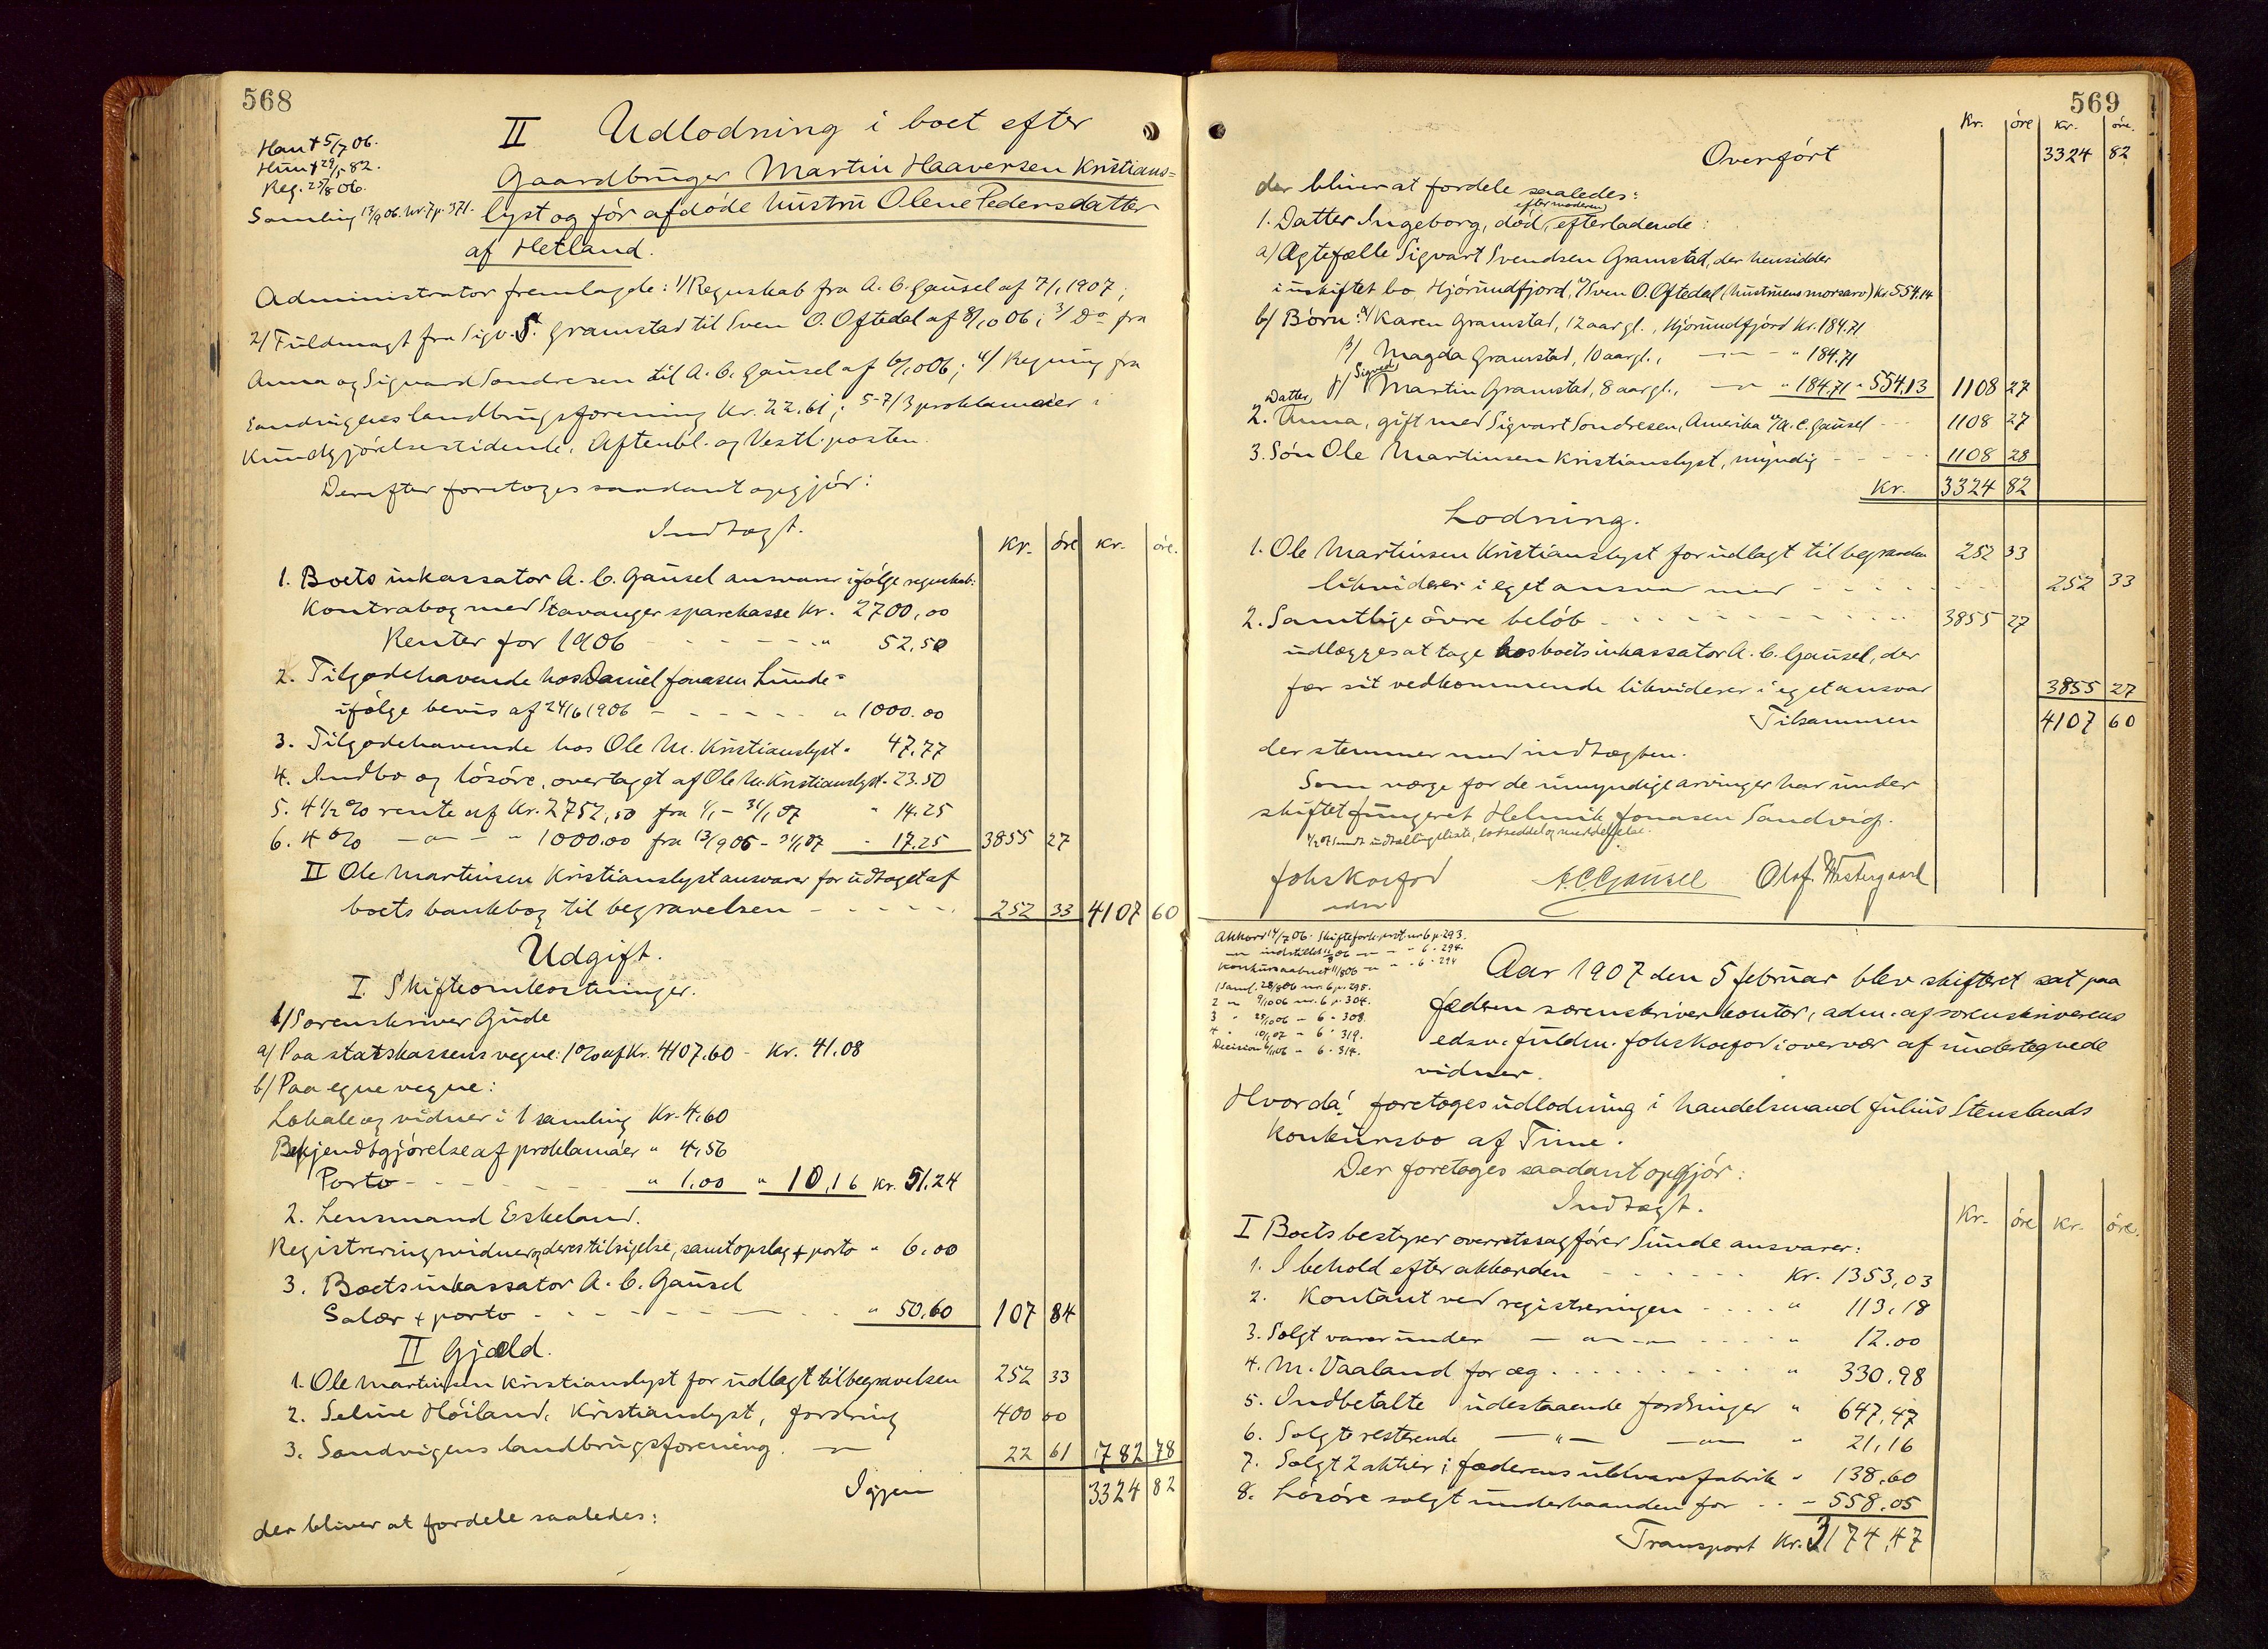 568
Han † 5/7 06.
Hun † 29/5 82.
Reg. 25/8 06.
Samling 13/9 06. nr. 7 p. 371.
II Udlodning i boet efter
Gaardbruger Martin Haaversen Kristians-
lyst og før afdøde hustru Olene Pedersdatter
af Hetland.
Administrator fremlagde: 1/ Regnskab fra A. C. Gausel af 7/1 1907;
2/ Fuldmagt fra Sigv. S. Gramstad til Sven O. Oftedal af 8/10 06; 3/ Do fra
Anna og Sigvard Sondresen til A. C. Gausel af 6/10 06; 4/ Regning fra
Sandvigens landbrugsforening Kr. 22.61; 5-7/ 3 proklamaer i
Kundgjørelsestidende, Aftenbl. og Vestl. posten.
Derefter foretoges saadant opgjør:
Indtægt.
Kr. øre Kr. øre.
1. Boets inkassator A. C. Gausel ansvarer ifølge regnskab:
Kontrabog med Stavanger sparekasse Kr. 2700,00
Renter for 1906 - - - - - - " 52,50
2. Tilgodehavende hos Daniel Jonasen Lunde
ifølge bevis af 24/6 1906 - - - - - " 1000.00
3. Tilgodehavende hos Ole M. Kristianslyst " 47,77
4. Indbo og løsøre, overtaget af Ole M. Kristianslyst " 23.50
5. 4 1/2 % rente af Kr. 2752,50 fra 1/1 - 31/1 07 " 14.25
6. 4 % - " - - " 1000.00 fra 13/9 06 - 31/1 07 " 17.25 3855 27
II Ole Martinsen Kristianslyst ansvarer for udtaget af
boets bankbog til begravelsen - - - - - 252 33 4107 60
Udgift.
I. Skifteomkostninger.
1/ Sorenskriver Gude
a/ Paa statskassens vegne: 1% af Kr. 4107.60 - Kr. 41.08
b/ Paa egne vegne:
Lokale og vidner i 1 samling Kr. 4.60
Bekjendtgjørelse af proklamaer " 4,56
Porto - - - - - - " 1.00 " 10,16 Kr. 51.24
2. Lensmand Eskeland.
Registreringsvidner og deres tilsigelse, samt opslag + porto " 6.00
3. Boets inkassator A. C. Gausel
Salær + porto - - - - - - " 50,60 107 84
II Gjæld.
1. Ole Martinsen Kristianslyst for udlagt til begravelsen 252 33
2. Seline Høiland, Kristianslyst, fordring 400 00
3. Sandvigens landbrugsforening. - " - 22 61 782 78
Igjen 3324 82
der bliver at fordele saaledes:
569
Kr. øre Kr. øre.
Overført 3324 82
der bliver at fordele saaledes:
efter moderen
1. Datter Ingeborg, død, efterladende:
a/ Ægtefælle Sigvart Svendsen Gramstad, der hensidder
i uskiftet bo, Hjørundfjord, v/ Sven O. Oftedal (hustruens morsarv) Kr. 554.14
b/ Børn: α/ Karen Gramstad, 12 aar gl., Hjørundfjord Kr. 184.71
β/ Magda Gramstad, 10 aar gl., - " - " 184.71
γ/ Sigved Martin Gramstad, 8 aar gl., - " - " 184.71 " 554.13 1108 27
2. Datter Anna, gift med Sigvart Sondresen, Amerika v/ A. C. Gausel - - - 1108 27
3. Søn Ole Martinsen Kristianslyst, myndig - - - - - 1108 28
Kr. 3324 82
Lodning.
1. Ole Martinsen Kristianslyst for udlagt til begravelsen 252 33
likviderer i eget ansvar med - - - - - - 252 33
2. Samtlige øvre beløb - - - - - - - - - 3855 27
udlægges at tage hos boets inkassator A. C. Gausel, der
for sit vedkommende likviderer i eget ansvar 3855 27
Tilsammen 4107 60
der stemmer med indtægten.
Som værge for de umyndige arvinger har under
skiftet fungeret Helmik Jonasen Sandvig.
4/2 07 sendt udtællingsliste, lodseddel og meddelelse.
Joh. Koefod A. C. Gausel Olof. Westergaard
edsv
Akkord 14/7 06. Skifteforh. prot. nr 6 p. 293.
- " - indstillet 11/8 06 - " - " 6 - 294.
Konkursaabnet 11/8 06 - " - " 6 - 294
1 Saml. 28/8 06 nr. 6 p. 295.
2 - " 9/10 06 nr. 6 p. 304.
3 " 25/10 06 - 6 - 308.
4 " 10/1 07 - 6 - 319.
Decision 6/11 06 - 6 - 314.
Aar 1907 den 5 februar blev skifteret sat paa
Jæderen sorenskriverkontor, adm. af sorenskriverens
edsv. fuldm. Joh. Koefod i overvær af undertegnede
vidner.
Hvorda: foretoges udlodning i handelsmand Julius Stenslands
konkursbo af Time.
Der foretoges saadant opgjør:
Indtægt.
Kr. øre Kr. øre.
I Boets bestyrer overretssagfører Sunde ansvarer:
1. I behold efter akkorden - - - - - - Kr. 1353,03
2. Kontant ved registreringen - - - - " 113,18
3. Solgt varer under - " - " - - - " 12.00
4. M. Vaaland for æg - - - - - - - " 330.98
5. Indbetalte udestaaende fordringer " 647,47
6. Solgte resterende - " - - " - " 21,16
7. Solgt 2 aktier i Jæderens uldvarefabrik " 138,60
8. Løsøre solgt underhaanden for - - - 558.05
Transport Kr. 3174,47